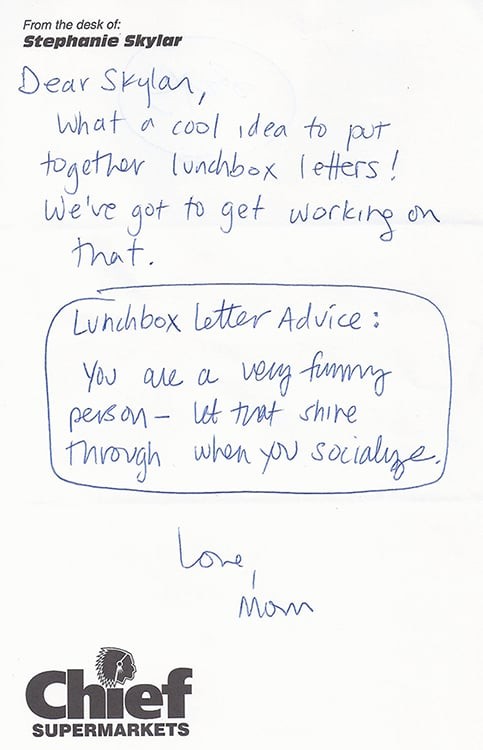 From the desk of:
Stephanie Skylar
Dear Skylan,
What a cool idea to put
together lunchbox letters!
We've got to get working on
that.
Lunchbox Letter Advice:
You are a very funny
person – let that shine
through when you socialize.
Love,
Mom
Chief
SUPERMARKETS